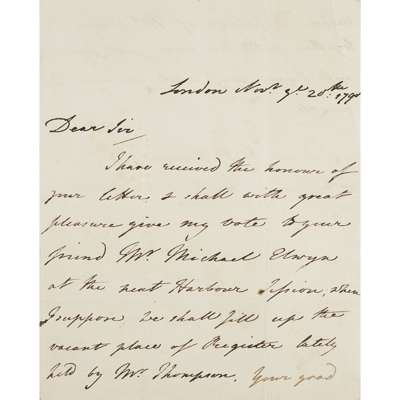 London Novr. ye. 20.the 1790
Dear Sir
I have received the honour of
your letter & shall with great
pleasure give my vote to your
friend Mr. Michael Elwyn
at the next Harbour Session, when
I suppose we shall fill up the
vacant place of Register lately
held by Mr. Thompson. Your good